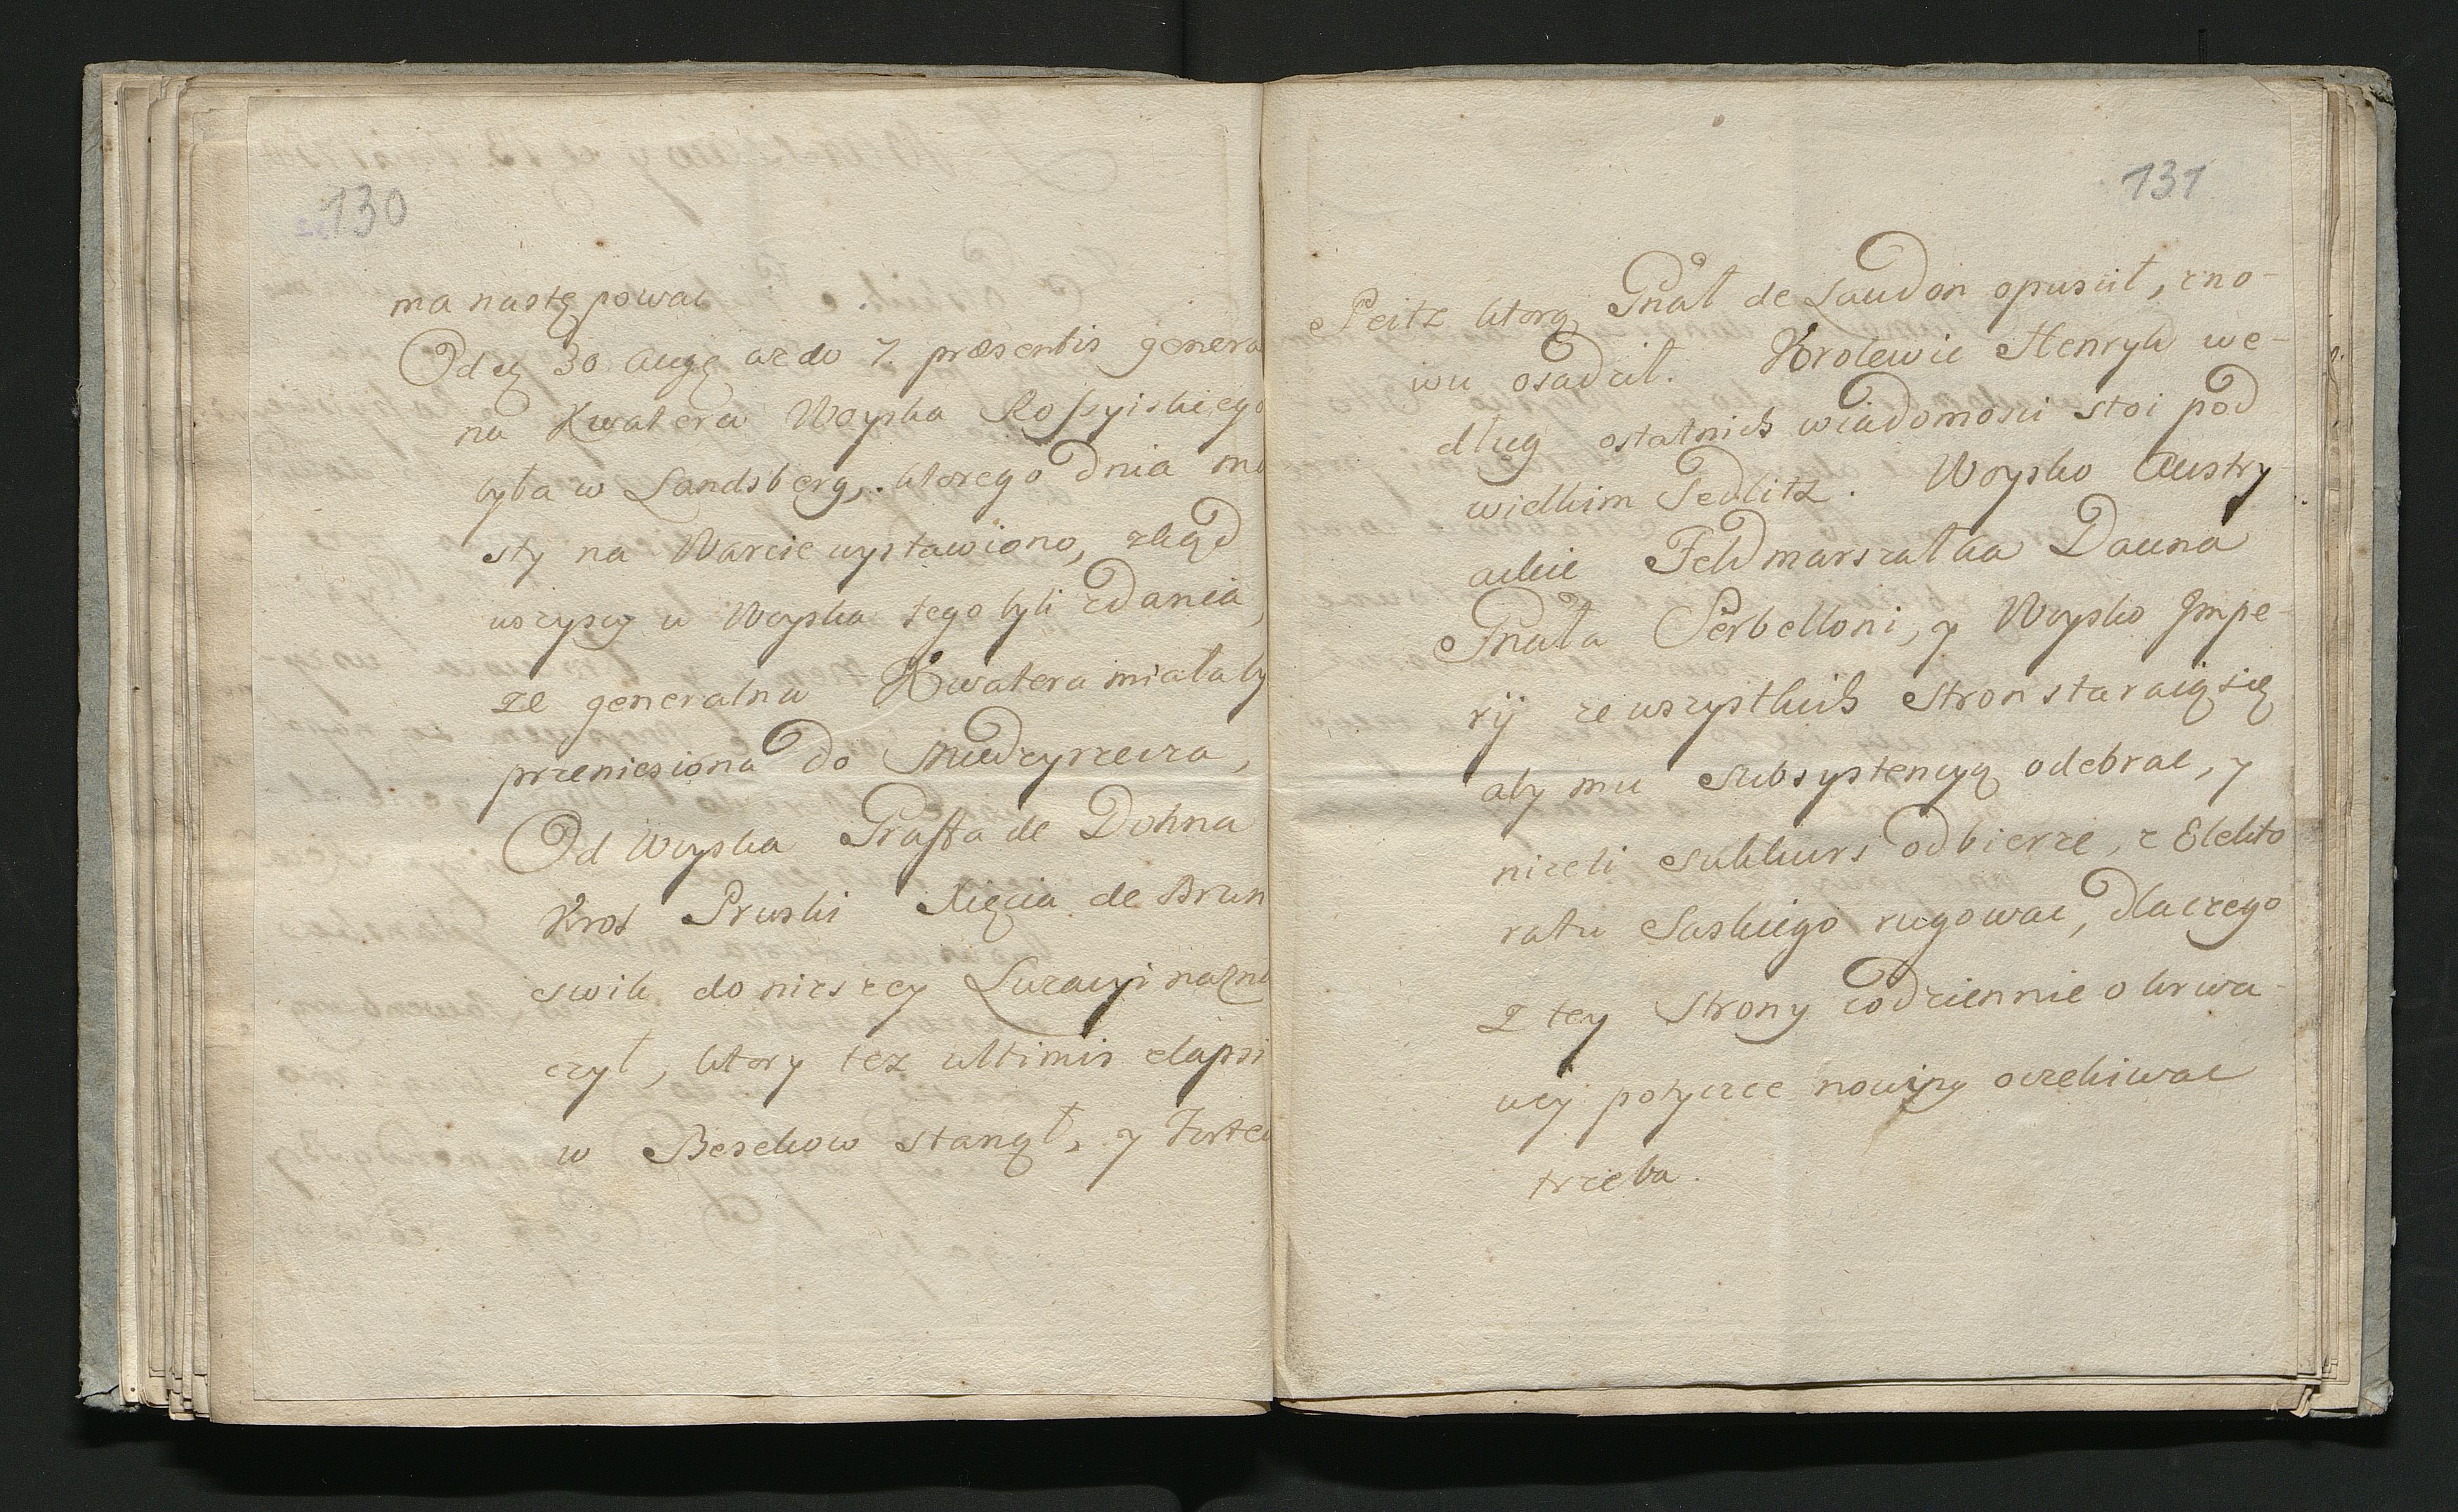 130
ma następowac
Od ej 30 Augę az do 7. præsentis genera
na Kwatera Woyska Rossyiskiego
była w Landsberg, ktorego dnia mo
sty na Warcie wystawiono, zkąd
wszyscy u Woyska tego byli zdania,
ze generalna Kwatera miała by
przeniesiona do Miedzyrzecza,
Od Woyska Graffa de Dohna
Krol Pruski Xięcia de Brun
swik do nizszey Luzacyi nazna
czył, ktory tez ultimis elapsi
w Beskow stanął, y Forte
131
Peitz ktorą Gnał de Laudon opuscił, zno-
wu osadził. Krolewic Henryk we-
dług ostatnich wiadomosci stoi pod
wielkim Sedlitz. Woysko Austry
ackie Feldmarszałka Dauna
Gnała Serbelloni, y Woysko Jmpe-
rij ze wszystkich Stron staraią się
aby mu Subsystencyą odebrac, y
nizeli sukkurs odbierze, z Elekto
ratu Saskiego rugowac, dlaczego
z tey Strony codziennie o krwa-
wey potyczce nowiny oczekiwac
trzeba.